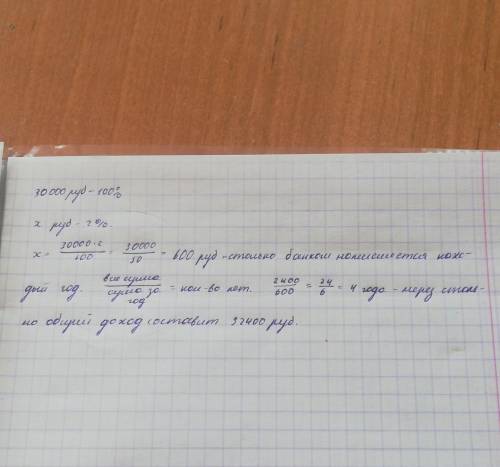 30000 руб - 100%
x руб - 2%.
x = 30000·2/100 = 30000/50 = 600 руб - столько банком начисляется каж-
дый год. вся сумма/сумма за год = кол-во лет. 2400/600 = 24/6 = 4 года - через столь-
ко общий доход составит 32400 руб.